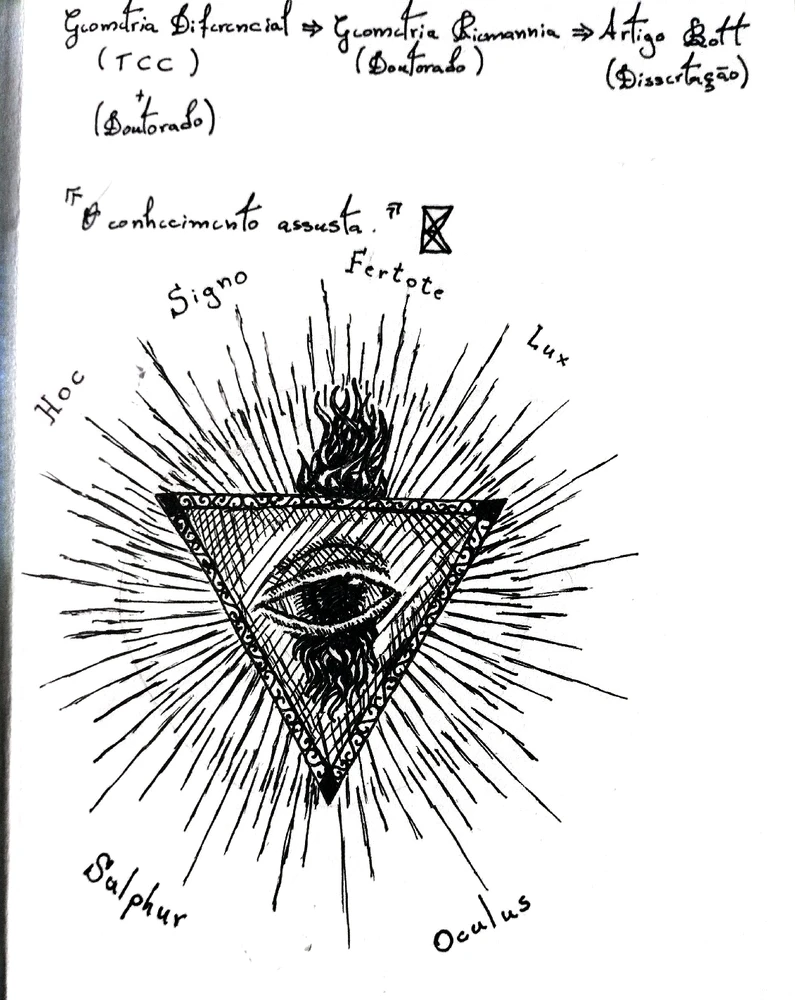 Geometria Diferencial ⇒ Geometria Riemannia ⇒ Artigo Bott
(TCC) (Doutorado) (Dissertação)
+
(Doutorado)
"O conhecimento assusta."
Signo Fertote
Hoc Lux
Sulphur Oculus